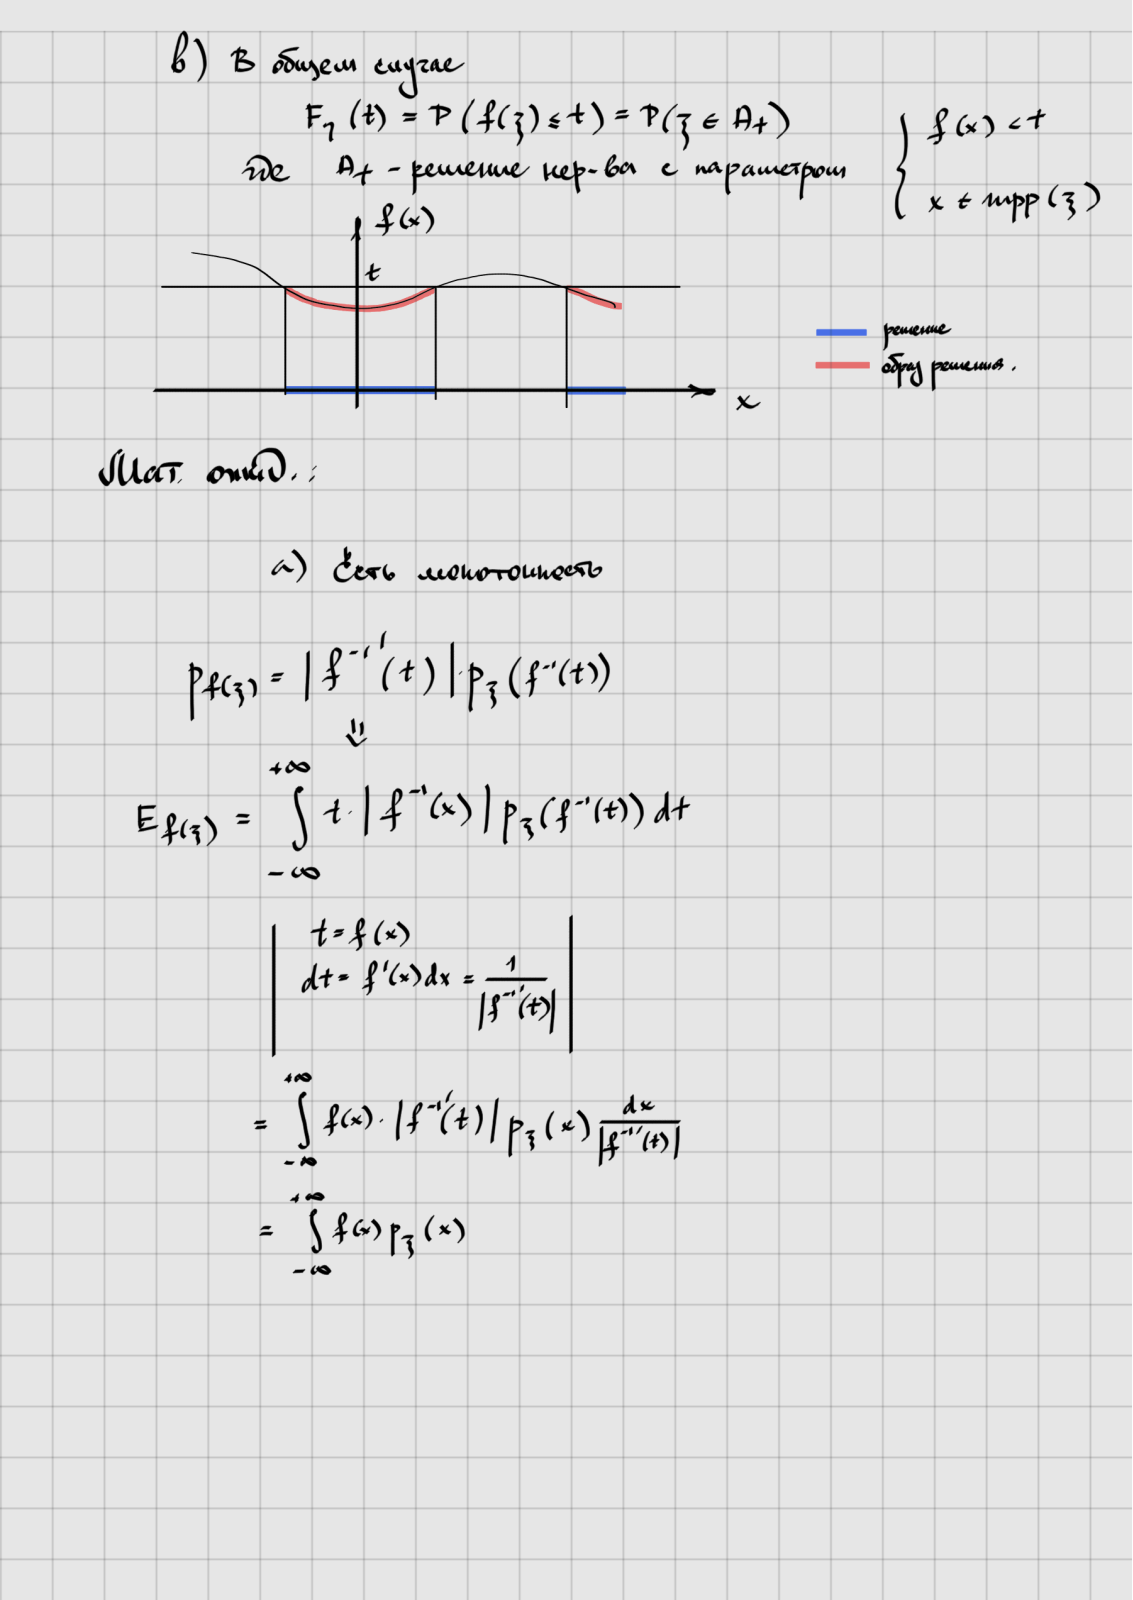 в) В общем случае
F_η(t) = P(f(ξ) ≤ t) = P(ξ ∈ A_t)
где A_t - решение нер-ва с параметром
{ f(x) < t
x ∈ supp(ξ)
f(x)
t
x
решение
образ решения.
Мат. ожид.:
а) Есть монотонность
p_{f(ξ)} = |f⁻¹′(t)|·p_ξ(f⁻¹(t))
⇓
E_{f(ξ)} = ∫_{-∞}^{+∞} t·|f⁻¹(x)| p_ξ(f⁻¹(t)) dt
| t = f(x)
dt = f'(x)dx = 1/|f⁻¹′(t)| |
= ∫_{-∞}^{+∞} f(x)·|f⁻¹′(t)| p_ξ(x) dx/|f⁻¹′(t)|
= ∫_{-∞}^{+∞} f(x) p_ξ(x)